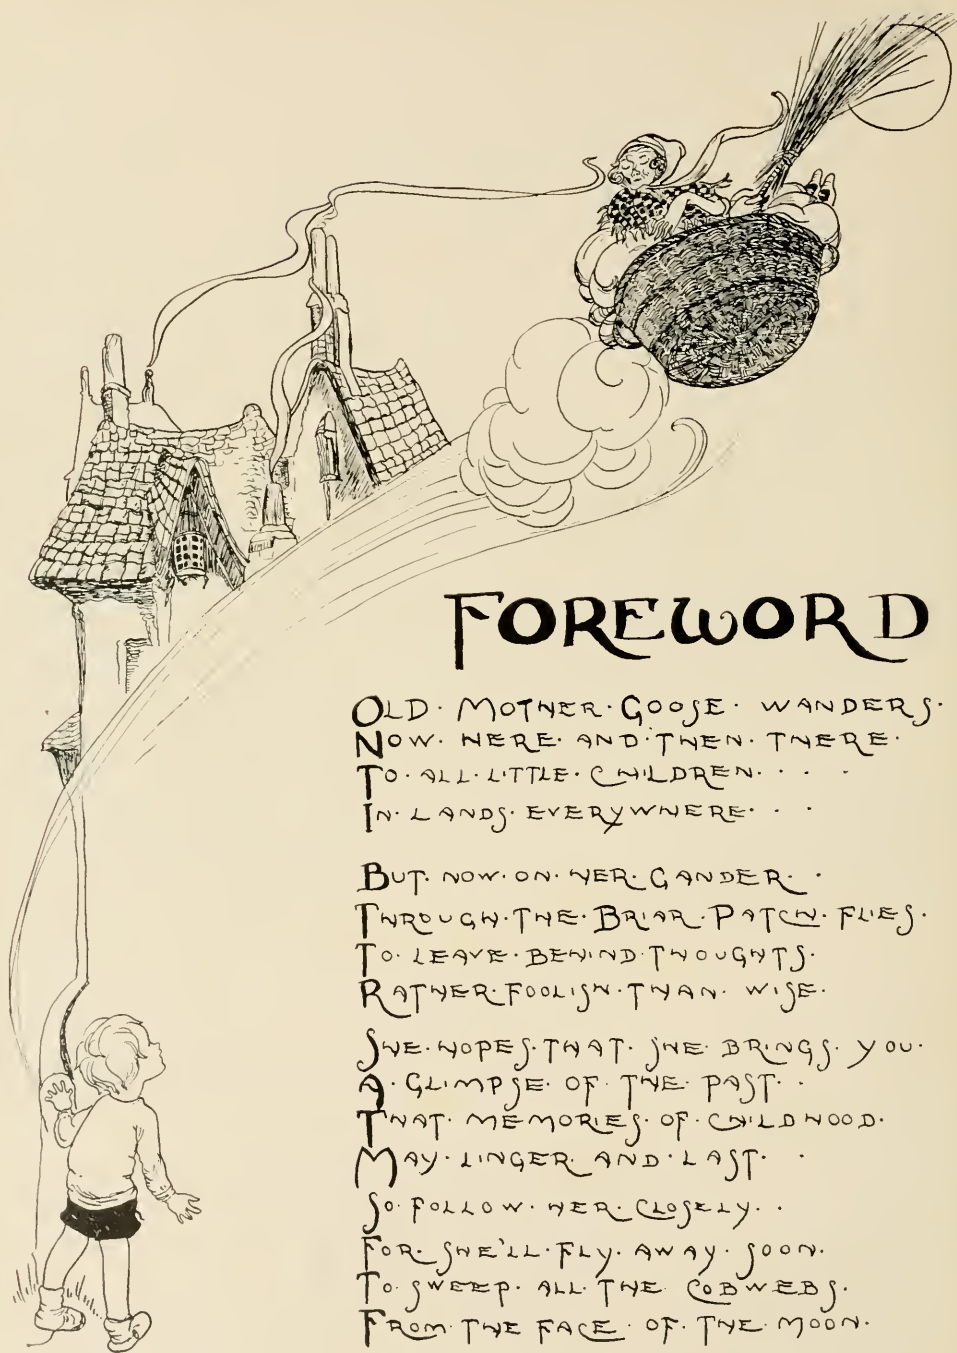 FOREWORD
OLD · MOTHER · GOOSE · WANDERS ·
NOW · HERE · AND · THEN · THERE ·
TO · ALL · LITTLE · CHILDREN · · · ·
IN · LANDS · EVERYWHERE · · ·
BUT · NOW · ON · HER · GANDER · ·
THROUGH · THE · BRIAR · PATCH · FLIES ·
TO · LEAVE · BEHIND · THOUGHTS ·
RATHER · FOOLISH · THAN · WISE ·
SHE · HOPES · THAT · SHE · BRINGS · YOU ·
A · GLIMPSE · OF · THE · PAST · ·
THAT · MEMORIES · OF · CHILDHOOD ·
MAY · LINGER · AND · LAST · ·
SO · FOLLOW · HER · CLOSELY · ·
FOR · SHE'LL · FLY · AWAY · SOON ·
TO · SWEEP · ALL · THE · COBWEBS ·
FROM · THE · FACE · OF · THE · MOON ·